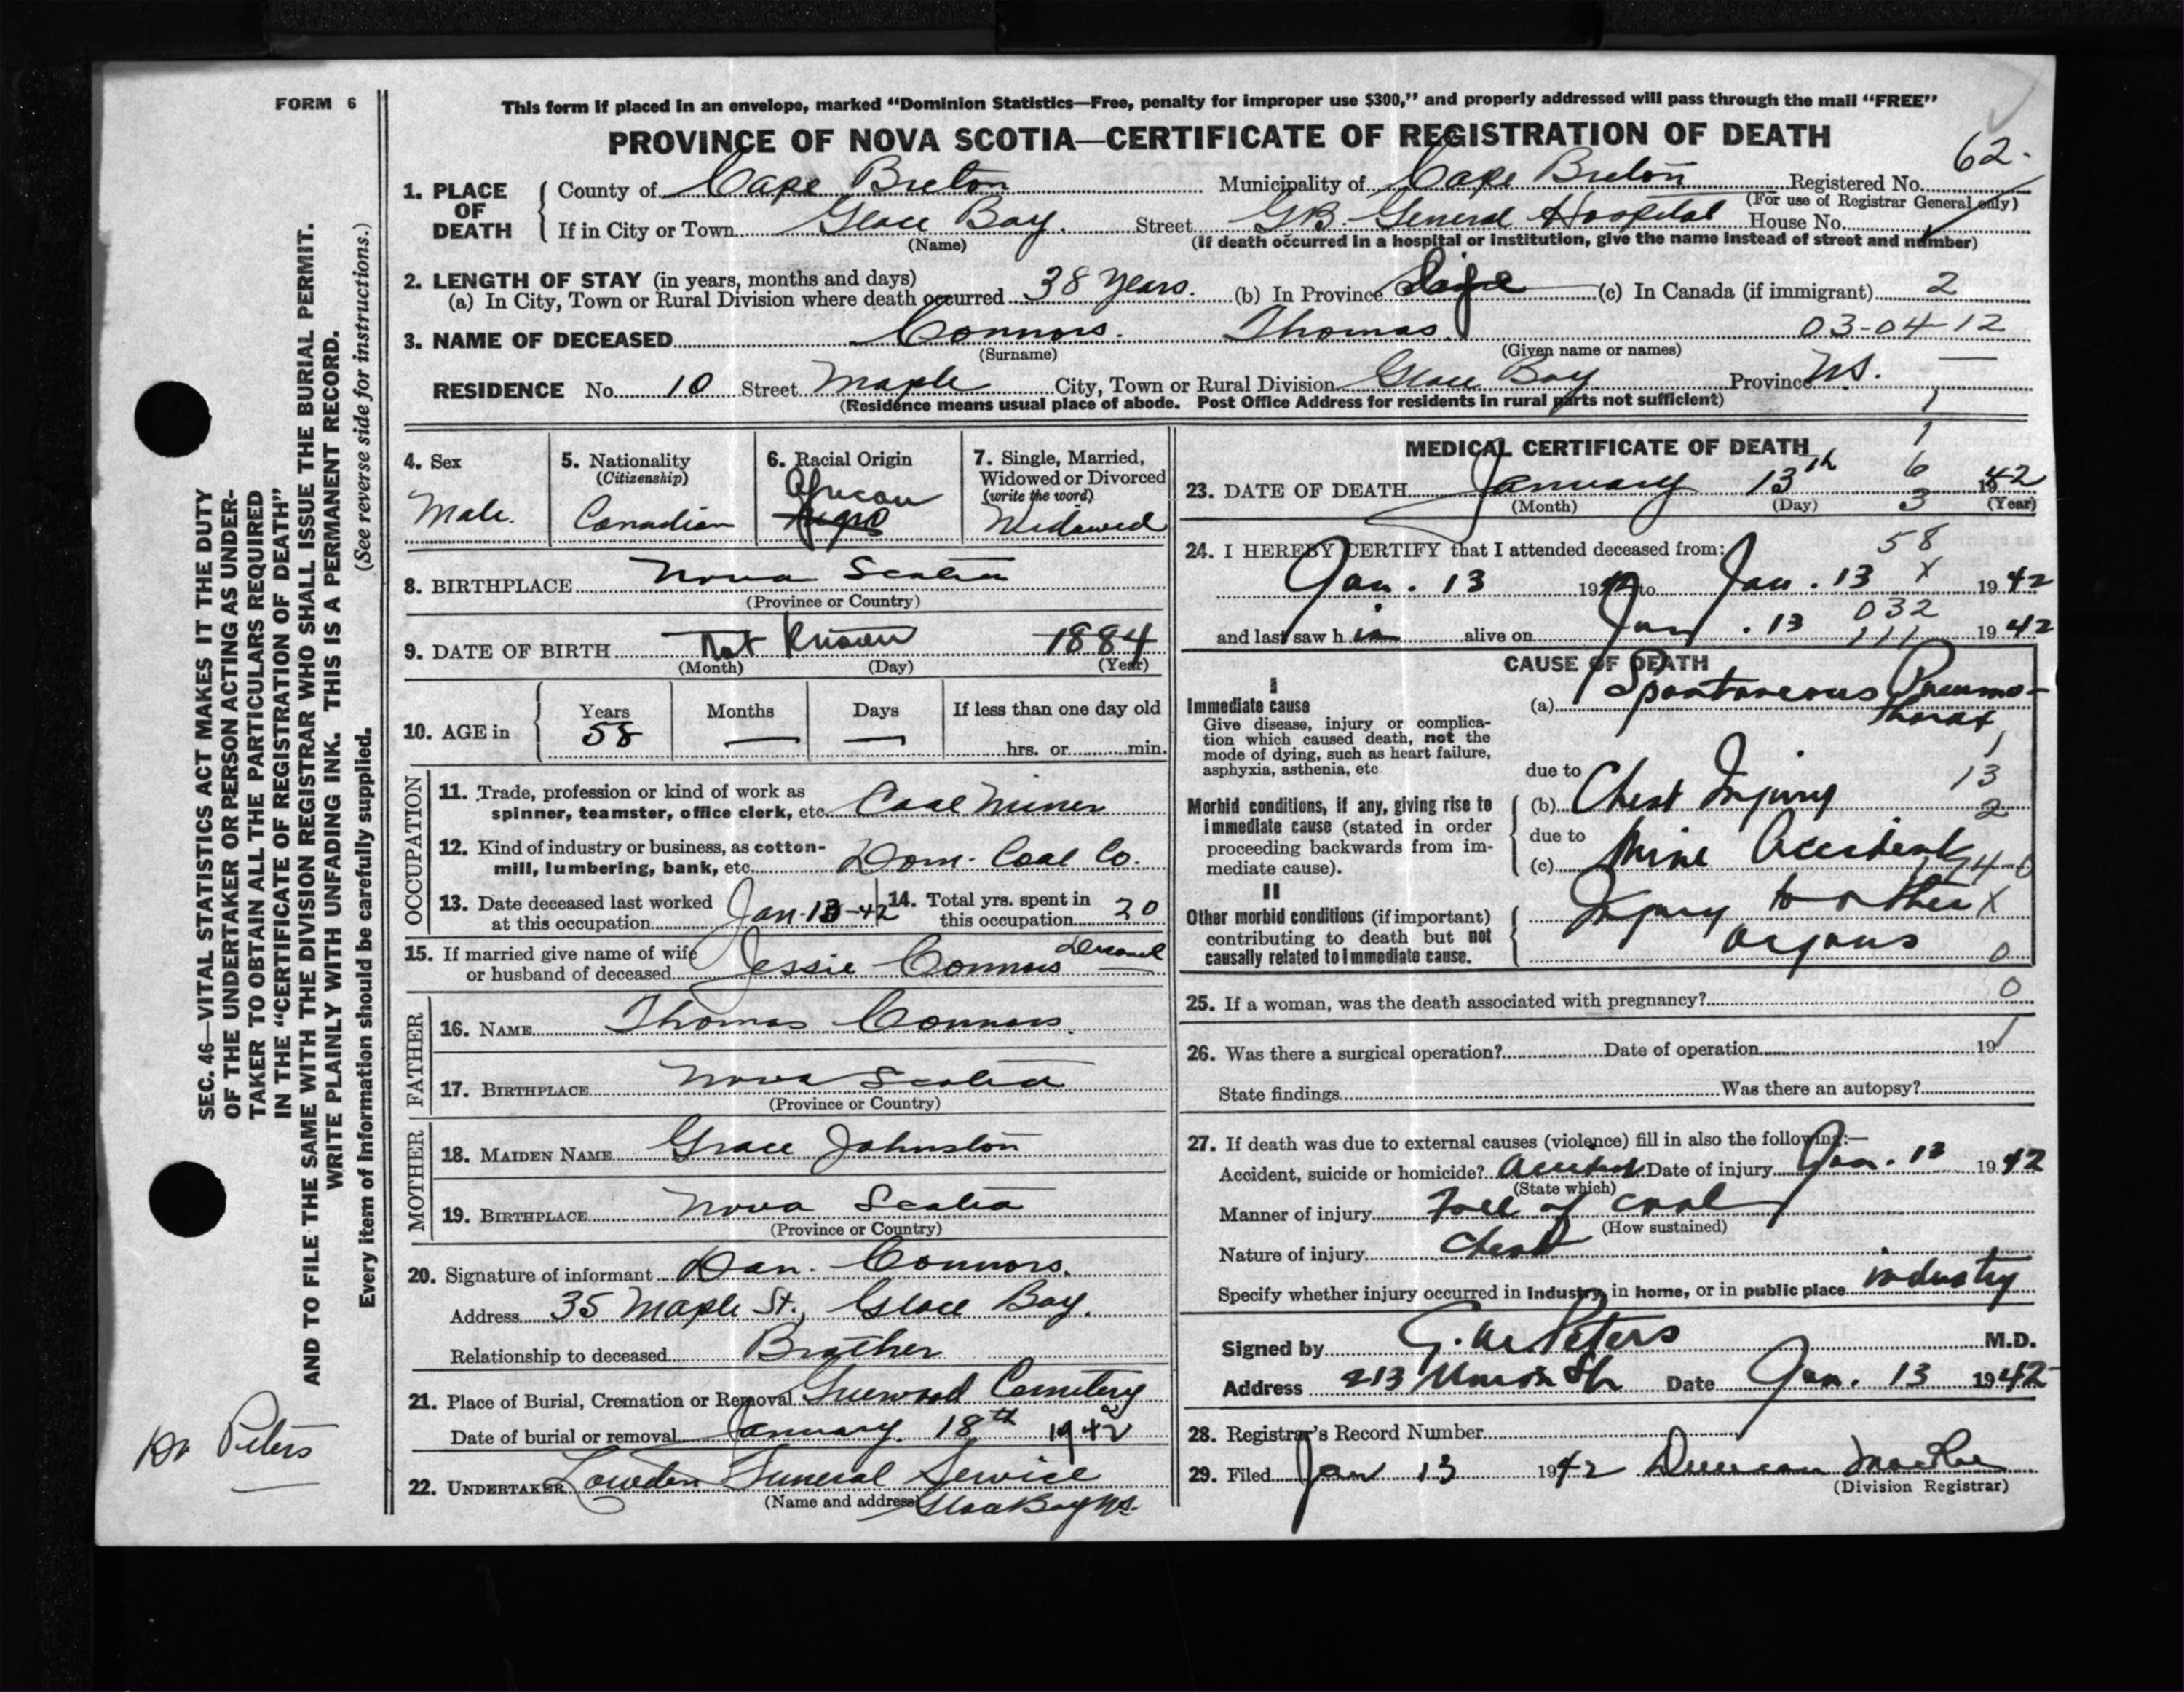 FORM 6
This form if placed in an envelope, marked "Dominion Statistics—Free, penalty for improper use $300," and properly addressed will pass through the mail "FREE"
PROVINCE OF NOVA SCOTIA—CERTIFICATE OF REGISTRATION OF DEATH
62.
1. PLACE OF DEATH
County of Cape Breton Municipality of Cape Breton Registered No.
(For use of Registrar General only)
If in City or Town Glace Bay. Street G.B. General Hospital House No.
(Name) (If death occurred in a hospital or institution, give the name instead of street and number)
2. LENGTH OF STAY (in years, months and days)
(a) In City, Town or Rural Division where death occurred 38 years. (b) In Province Life (c) In Canada (if immigrant) 2
3. NAME OF DECEASED Connors. Thomas. 03-04-12
(Surname) (Given name or names)
RESIDENCE No. 10 Street Maple City, Town or Rural Division Glace Bay Province N.S.
(Residence means usual place of abode. Post Office Address for residents in rural parts not sufficient)
1
4. Sex
Male.
5. Nationality
(Citizenship)
Canadian
6. Racial Origin
African
Negro
7. Single, Married,
Widowed or Divorced
(write the word)
Widowed
8. BIRTHPLACE Nova Scotia
(Province or Country)
9. DATE OF BIRTH Not Known 1884
(Month) (Day) (Year)
10. AGE in
Years Months Days If less than one day old
58 — — hrs. or min.
OCCUPATION
11. Trade, profession or kind of work as
spinner, teamster, office clerk, etc. Coal Miner
12. Kind of industry or business, as cotton-
mill, lumbering, bank, etc. Dom. Coal Co.
13. Date deceased last worked
at this occupation Jan-13-42
14. Total yrs. spent in
this occupation 20
15. If married give name of wife
or husband of deceased Jessie Connors
FATHER
16. NAME Thomas Connors.
17. BIRTHPLACE Nova Scotia
(Province or Country)
MOTHER
18. MAIDEN NAME Grace Johnston
19. BIRTHPLACE Nova Scotia
(Province or Country)
20. Signature of informant Dan. Connors.
Address 35 Maple St., Glace Bay.
Relationship to deceased Brother
21. Place of Burial, Cremation or Removal Greenwood Cemetery
Date of burial or removal January. 18th 1942
22. UNDERTAKER Lowden Funeral Service
(Name and address) Glace Bay N.S.
MEDICAL CERTIFICATE OF DEATH
1
6
3
23. DATE OF DEATH January 13th 1942
(Month) (Day) (Year)
24. I HEREBY CERTIFY that I attended deceased from:
58
X
Jan. 13 1942 to Jan. 13 1942
032
111
and last saw him alive on Jan. 13 1942
CAUSE OF DEATH
I
Immediate cause
Give disease, injury or complica-
tion which caused death, not the
mode of dying, such as heart failure,
asphyxia, asthenia, etc.
(a) Spontaneous Pneumo-
thorax
1
13
2
due to
Morbid conditions, if any, giving rise to
immediate cause (stated in order
proceeding backwards from im-
mediate cause).
(b) Chest Injury
due to
(c) Mine Accident
II
Other morbid conditions (if important)
contributing to death but not
causally related to immediate cause.
Injury to other X
organs 0
25. If a woman, was the death associated with pregnancy? 0
26. Was there a surgical operation? Date of operation 19
State findings Was there an autopsy?
27. If death was due to external causes (violence) fill in also the following:—
Accident, suicide or homicide? Accident Date of injury Jan. 13 1942
(State which)
Manner of injury Fall of coal
(How sustained)
Nature of injury Chest
Specify whether injury occurred in industry, in home, or in public place industry
Signed by G. W. Peters M.D.
Address 213 Union St. Date Jan. 13 1942
28. Registrar's Record Number
29. Filed Jan 13 1942 Duncan MacRae
(Division Registrar)
SEC. 46—VITAL STATISTICS ACT MAKES IT THE DUTY
OF THE UNDERTAKER OR PERSON ACTING AS UNDER-
TAKER TO OBTAIN ALL THE PARTICULARS REQUIRED
IN THE "CERTIFICATE OF REGISTRATION OF DEATH"
AND TO FILE THE SAME WITH THE DIVISION REGISTRAR WHO SHALL ISSUE THE BURIAL PERMIT.
WRITE PLAINLY WITH UNFADING INK. THIS IS A PERMANENT RECORD.
Every item of information should be carefully supplied. (See reverse side for instructions.)
Dr Peters